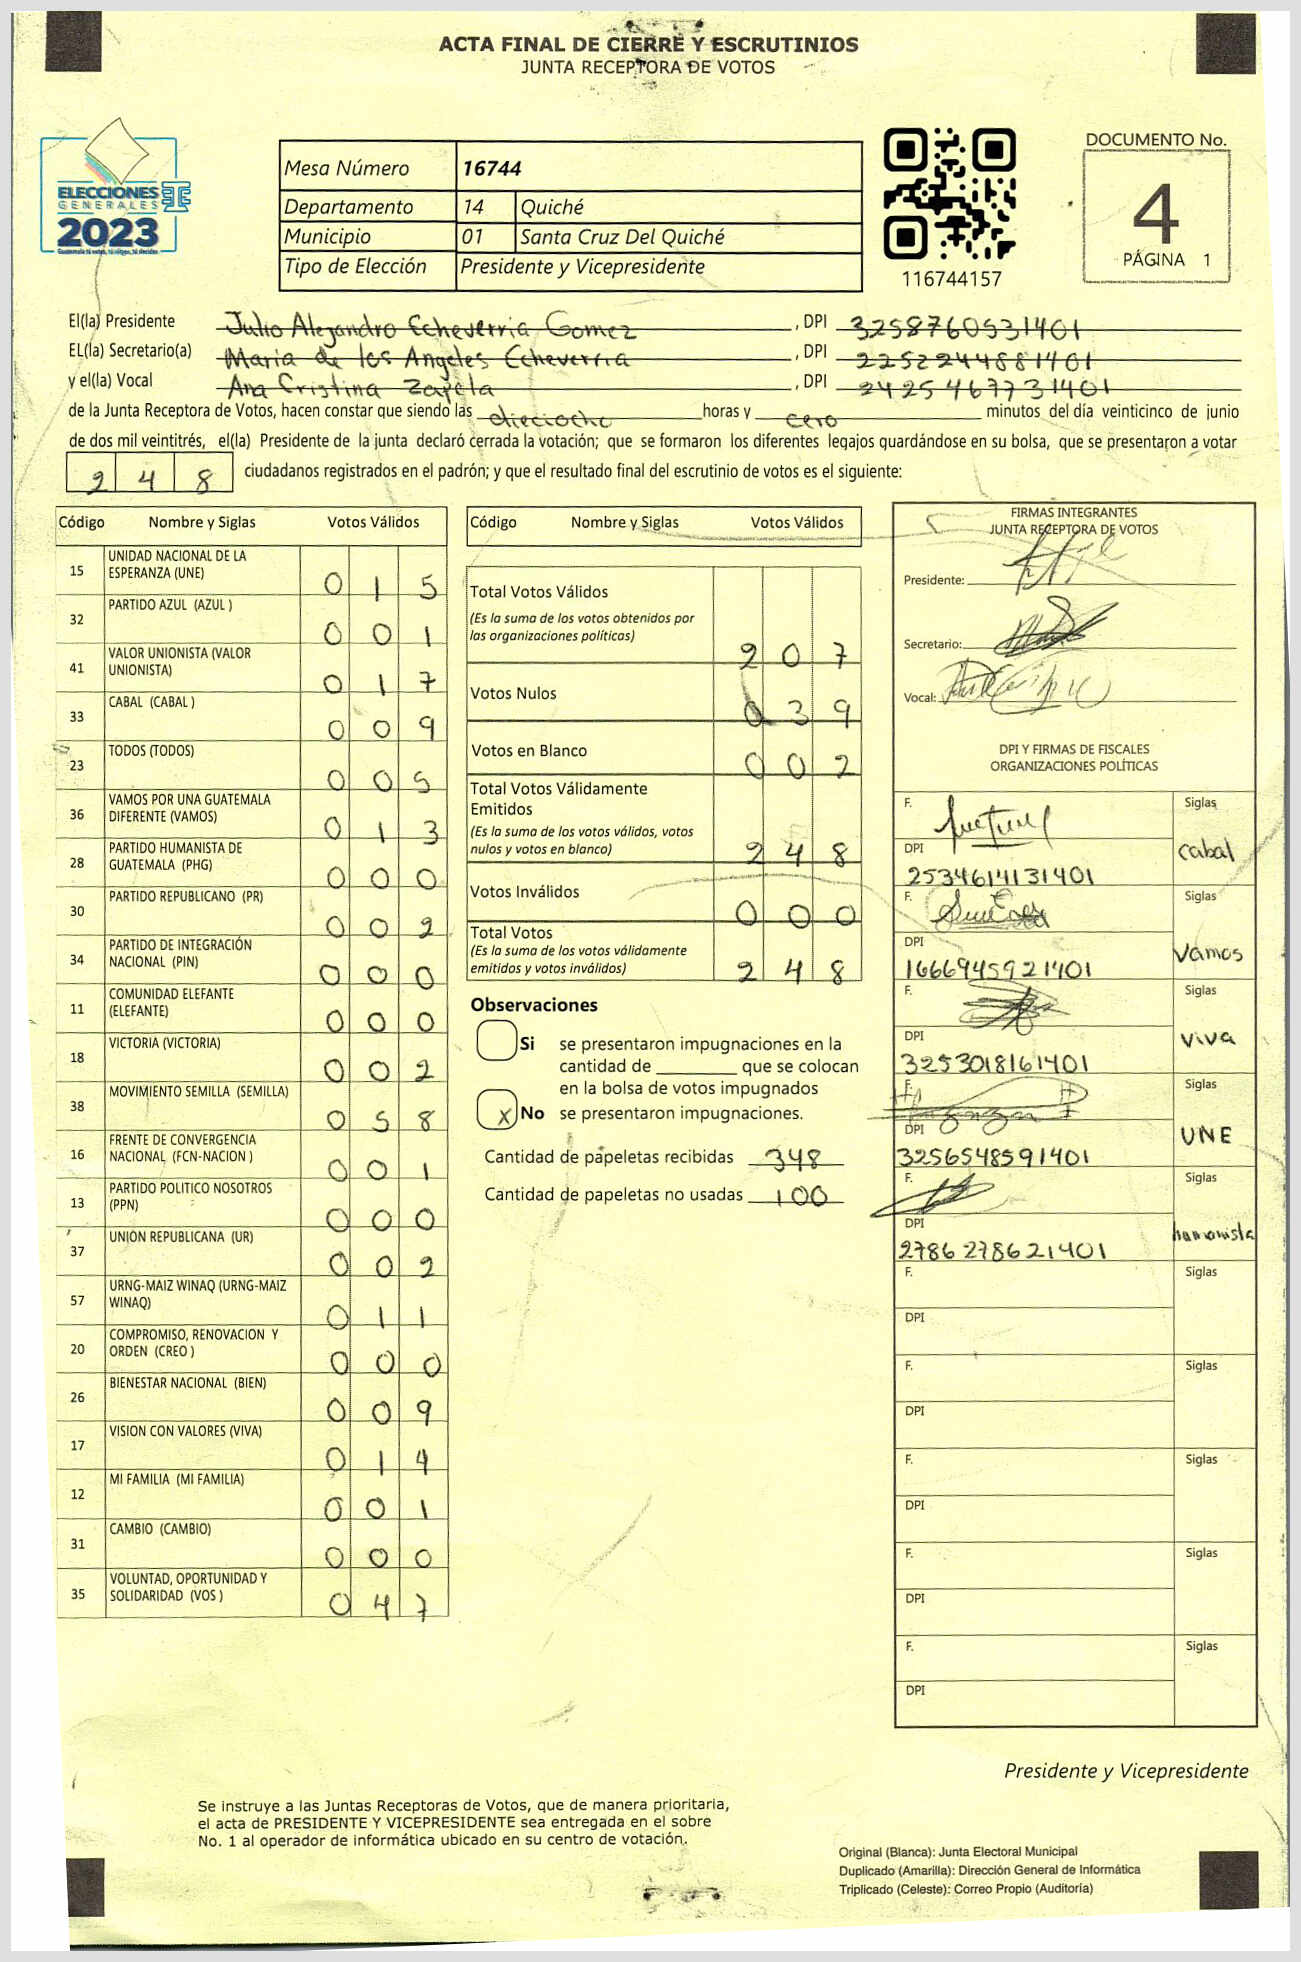 ACTA FINAL DE CIERRE Y ESCRUTINIOS
JUNTA RECEPTORA DE VOTOS
ELECCIONES
GENERALES
2023
Mesa Número 16744
Departamento 14 Quiché
Municipio 01 Santa Cruz Del Quiché
Tipo de Elección Presidente y Vicepresidente
116744157
DOCUMENTO No.
4
PÁGINA 1
El(la) Presidente Julio Alejandro Echeverria Gomez, DPI 3258760531401
EL(la) Secretario(a) Maria de los Angeles Echeverria, DPI 2252244881401
y el(la) Vocal Ana Cristina Zapeta, DPI 2425467731401
de la Junta Receptora de Votos, hacen constar que siendo las dieciocho horas y cero minutos del día veinticinco de junio
de dos mil veintitrés, el(la) Presidente de la junta declaró cerrada la votación; que se formaron los diferentes legajos guardándose en su bolsa, que se presentaron a votar
248 ciudadanos registrados en el padrón; y que el resultado final del escrutinio de votos es el siguiente:
Código Nombre y Siglas Votos Válidos
15 UNIDAD NACIONAL DE LA ESPERANZA (UNE) 015
32 PARTIDO AZUL (AZUL ) 001
41 VALOR UNIONISTA (VALOR UNIONISTA) 017
33 CABAL (CABAL ) 009
23 TODOS (TODOS) 005
36 VAMOS POR UNA GUATEMALA DIFERENTE (VAMOS) 013
28 PARTIDO HUMANISTA DE GUATEMALA (PHG) 000
30 PARTIDO REPUBLICANO (PR) 002
34 PARTIDO DE INTEGRACIÓN NACIONAL (PIN) 000
11 COMUNIDAD ELEFANTE (ELEFANTE) 000
18 VICTORIA (VICTORIA) 002
38 MOVIMIENTO SEMILLA (SEMILLA) 058
16 FRENTE DE CONVERGENCIA NACIONAL (FCN-NACION ) 001
13 PARTIDO POLITICO NOSOTROS (PPN) 000
37 UNION REPUBLICANA (UR) 002
57 URNG-MAIZ WINAQ (URNG-MAIZ WINAQ) 011
20 COMPROMISO, RENOVACION Y ORDEN (CREO ) 000
26 BIENESTAR NACIONAL (BIEN) 009
17 VISION CON VALORES (VIVA) 014
12 MI FAMILIA (MI FAMILIA) 001
31 CAMBIO (CAMBIO) 000
35 VOLUNTAD, OPORTUNIDAD Y SOLIDARIDAD (VOS ) 047
Código Nombre y Siglas Votos Válidos
Total Votos Válidos 207
(Es la suma de los votos obtenidos por
las organizaciones políticas)
Votos Nulos 039
Votos en Blanco 002
Total Votos Válidamente
Emitidos 248
(Es la suma de los votos válidos, votos
nulos y votos en blanco)
Votos Inválidos 000
Total Votos 248
(Es la suma de los votos válidamente
emitidos y votos inválidos)
Observaciones
Si se presentaron impugnaciones en la
cantidad de ________ que se colocan
en la bolsa de votos impugnados
X No se presentaron impugnaciones.
Cantidad de papeletas recibidas 348
Cantidad de papeletas no usadas 100
FIRMAS INTEGRANTES
JUNTA RECEPTORA DE VOTOS
Presidente:
Secretario:
Vocal:
DPI Y FIRMAS DE FISCALES
ORGANIZACIONES POLÍTICAS
F. Siglas
DPI cabal
2534614131401
F. Siglas
DPI Vamos
1666945921401
F. Siglas
DPI viva
3253018161401
F. Siglas
DPI UNE
3256548591401
F. Siglas
DPI humanista
2786278621401
F. Siglas
DPI
F. Siglas
DPI
F. Siglas
DPI
F. Siglas
DPI
F. Siglas
DPI
Presidente y Vicepresidente
Se instruye a las Juntas Receptoras de Votos, que de manera prioritaria,
el acta de PRESIDENTE Y VICEPRESIDENTE sea entregada en el sobre
No. 1 al operador de informática ubicado en su centro de votación.
Original (Blanca): Junta Electoral Municipal
Duplicado (Amarilla): Dirección General de Informática
Triplicado (Celeste): Correo Propio (Auditoría)